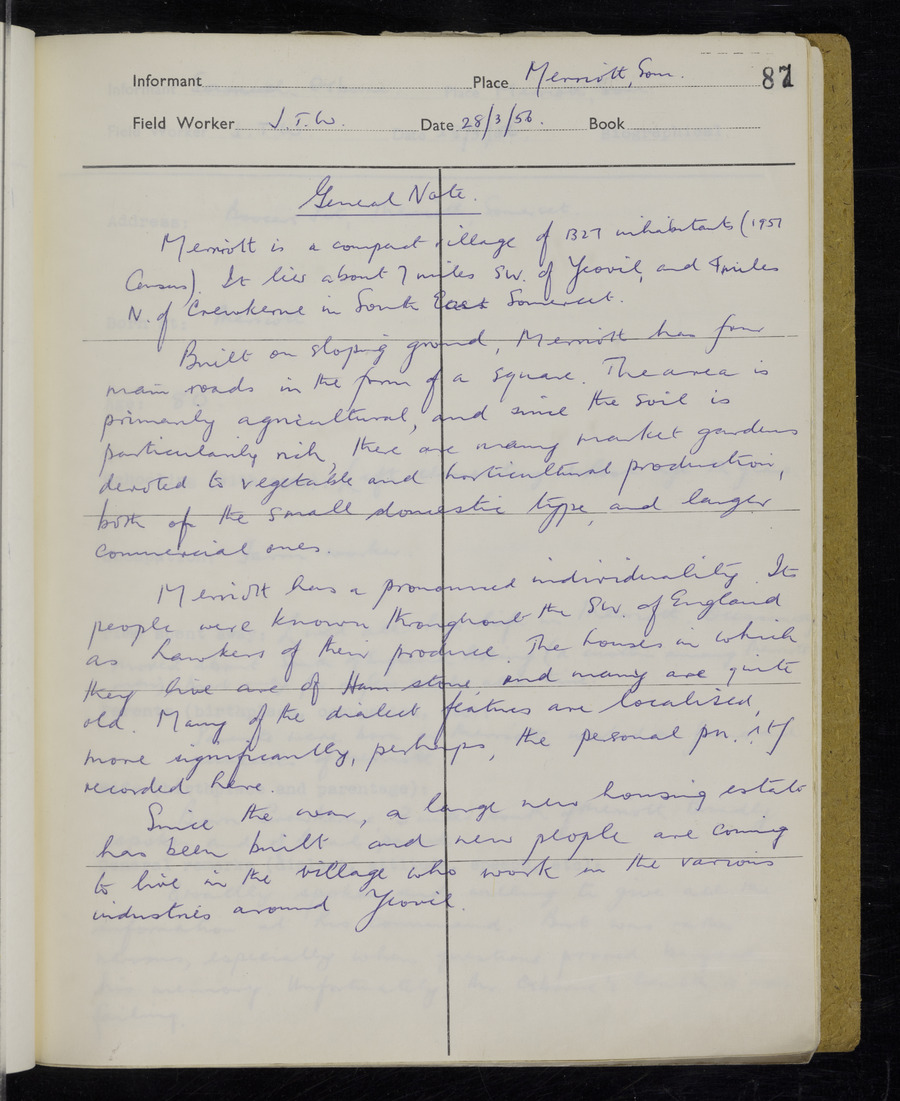 Informant Place Merriott, Som. 871
Field Worker J.T.W. Date 28/3/56. Book
General Note.
Merriott is a compact village of 1327 inhabitants (1951
Census). It lies about 7 miles SW. of Yeovil, and 2 miles
N. of Crewkerne in South East Somerset.
Built on sloping ground, Merriott has four
main roads in the form of a square. The area is
primarily agricultural, and since the soil is
particularly rich, there are many market gardens
devoted to vegetable and horticultural production,
both of the small domestic type, and larger
commercial ones.
Merriott has a pronounced individuality. Its
people were known throughout the SW. of England
as hawkers of their produce. The houses in which
they live are of Ham stone, and many are quite
old. Many of the dialect features are localised,
more significantly, perhaps, the personal pn.
recorded here.
Since the war, a large new housing estate
has been built and new people are coming
to live in the village who work in the various
industries around Yeovil.